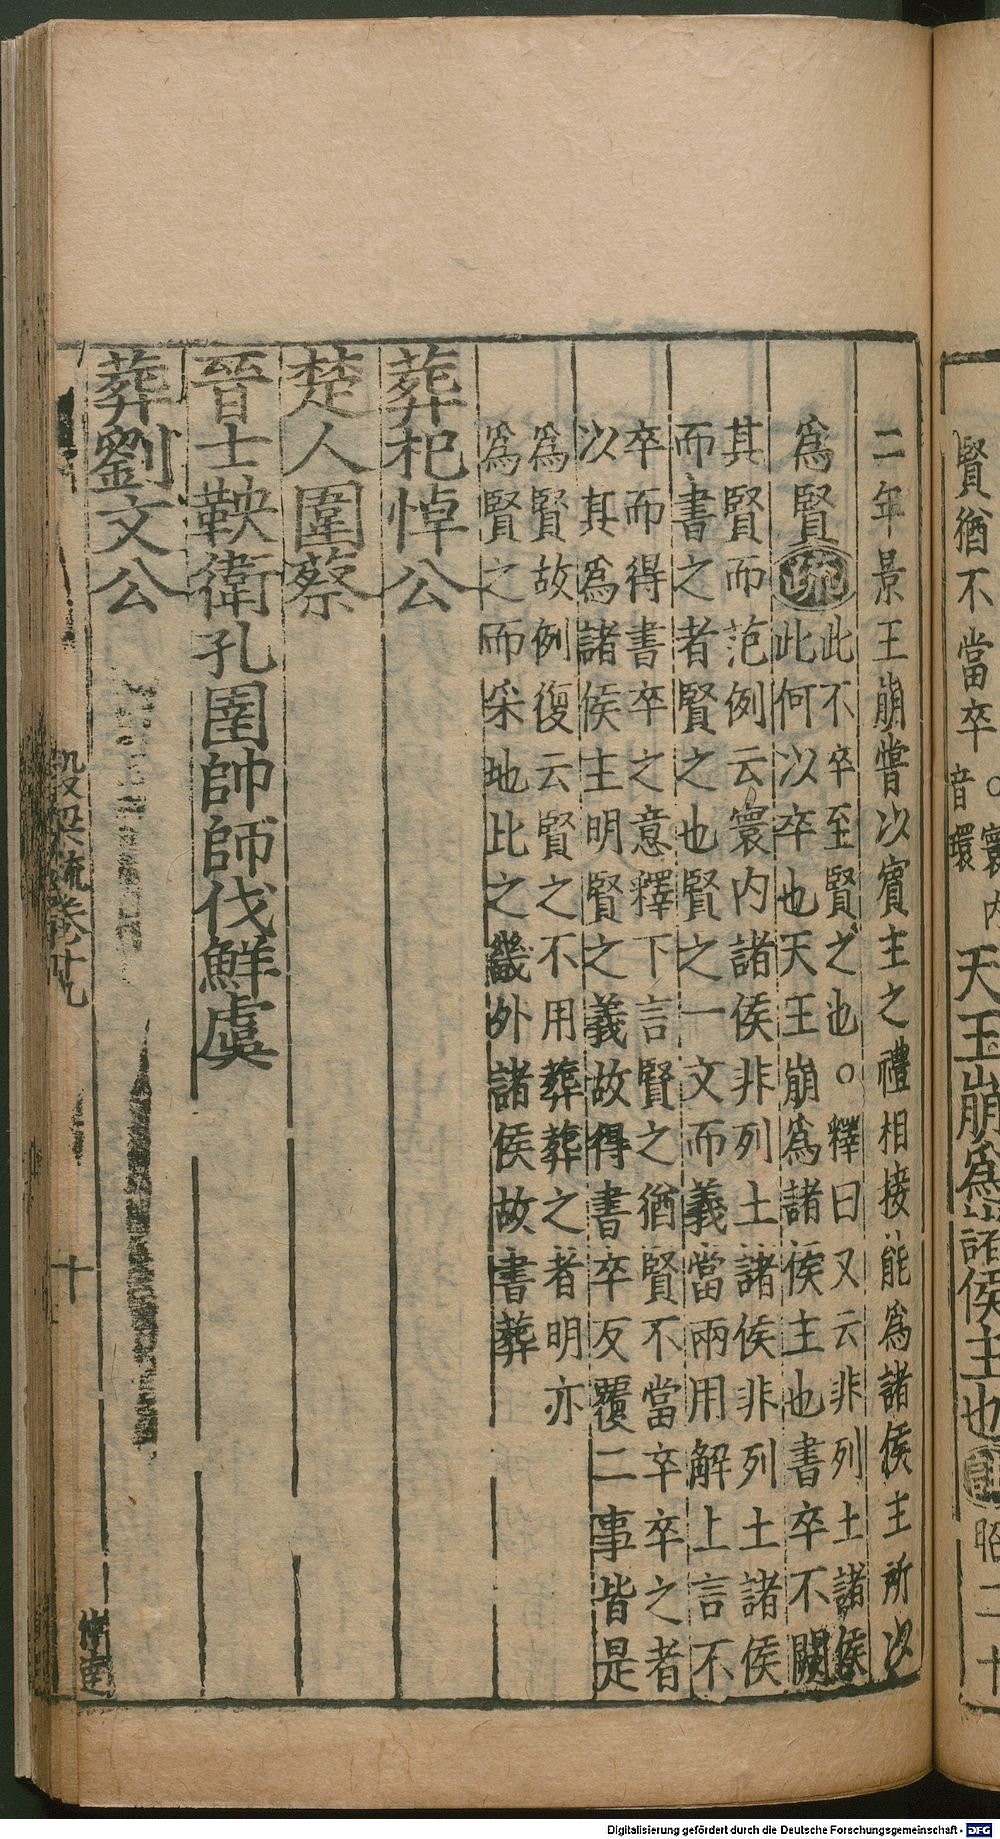 賢猶不當卒
○寰内
音環
天王崩爲諸侯主也
昭二十
二年景王崩嘗以賓主之禮相接能爲諸侯主所以
爲賢疏
此不卒至賢之也○釋曰又云非列土諸侯
此何以卒也天王崩爲諸侯主也書卒不關
其賢而范例云寰内諸侯非列土諸侯非列土諸侯
而書之者賢之也賢之一文而義當兩用解上言不
卒而得書卒之意釋下言賢之猶賢不當卒卒之者
以其爲諸侯主明賢之義故得書卒反覆二事皆是
爲賢故例復云賢之不用葬葬之者明亦
爲賢之而采地比之畿外諸侯故書葬
葬杞悼公
楚人圍蔡
晉士鞅衛孔圉帥師伐鮮虞
葬劉文公
穀梁疏卷十九
十
Digitalisierung gefördert durch die Deutsche Forschungsgemeinschaft - DFG